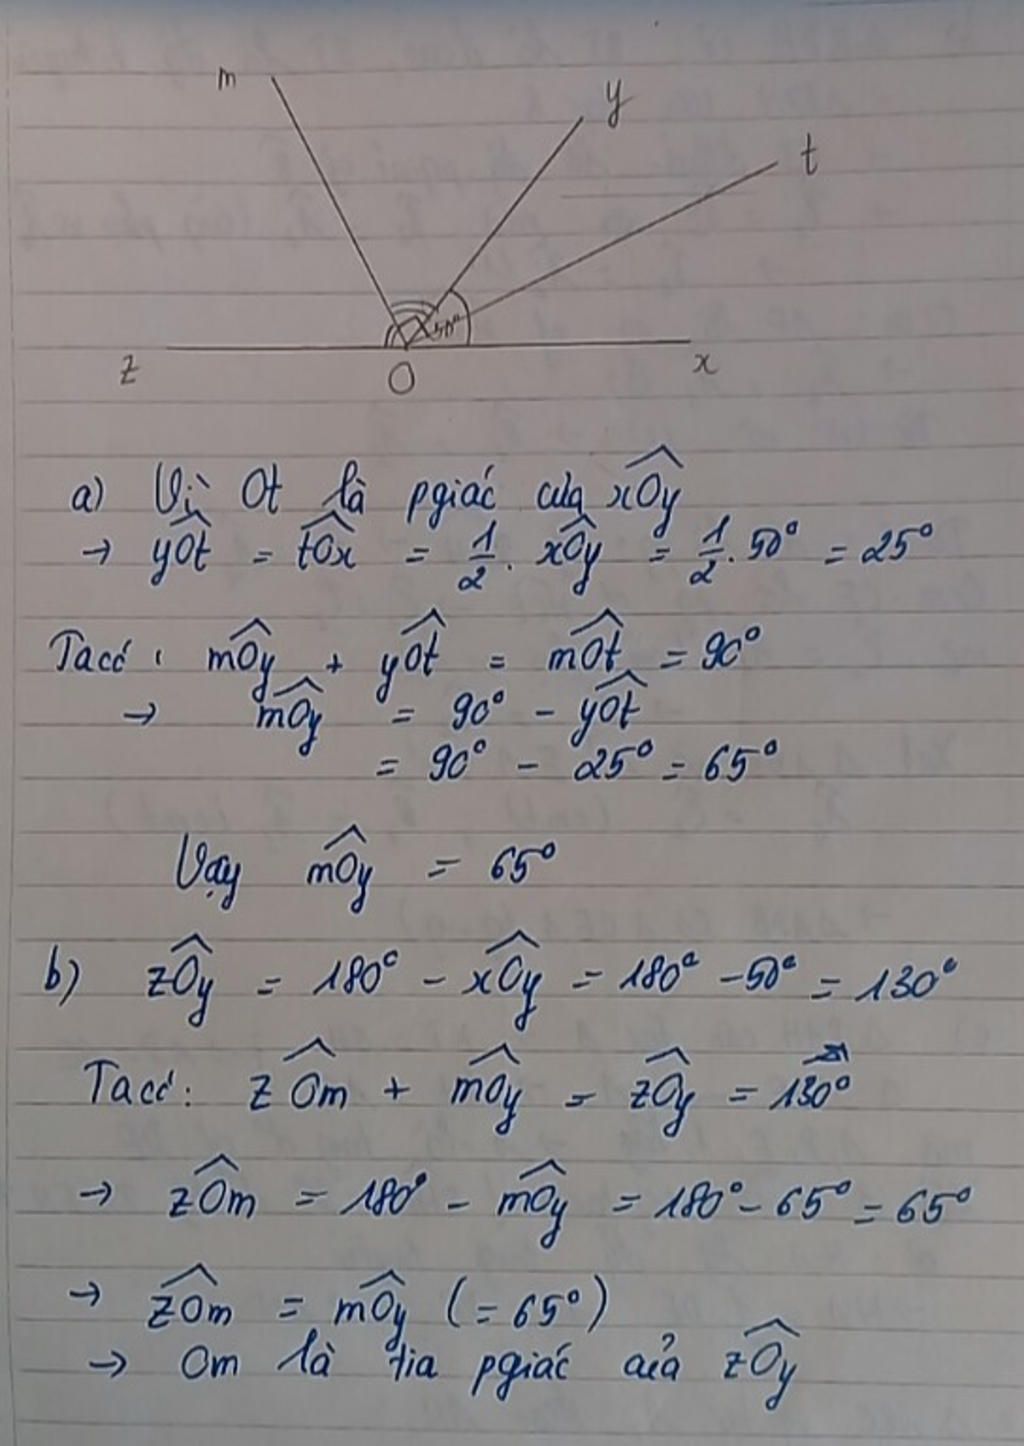 m
y
t
50°
z
O
x
a) Vì Ot là pgiác của xOy
→ yOt = tOx = 1/2 . xOy = 1/2 . 50° = 25°
Ta có : mOy + yOt = mOt = 90°
→ mOy = 90° - yOt
= 90° - 25° = 65°
Vậy mOy = 65°
b) zOy = 180° - xOy = 180° - 50° = 130°
Ta có: zOm + mOy = zOy = 130°
→ zOm = 180° - mOy = 180° - 65° = 65°
→ zOm = mOy (= 65°)
→ Om là tia pgiác của zOy